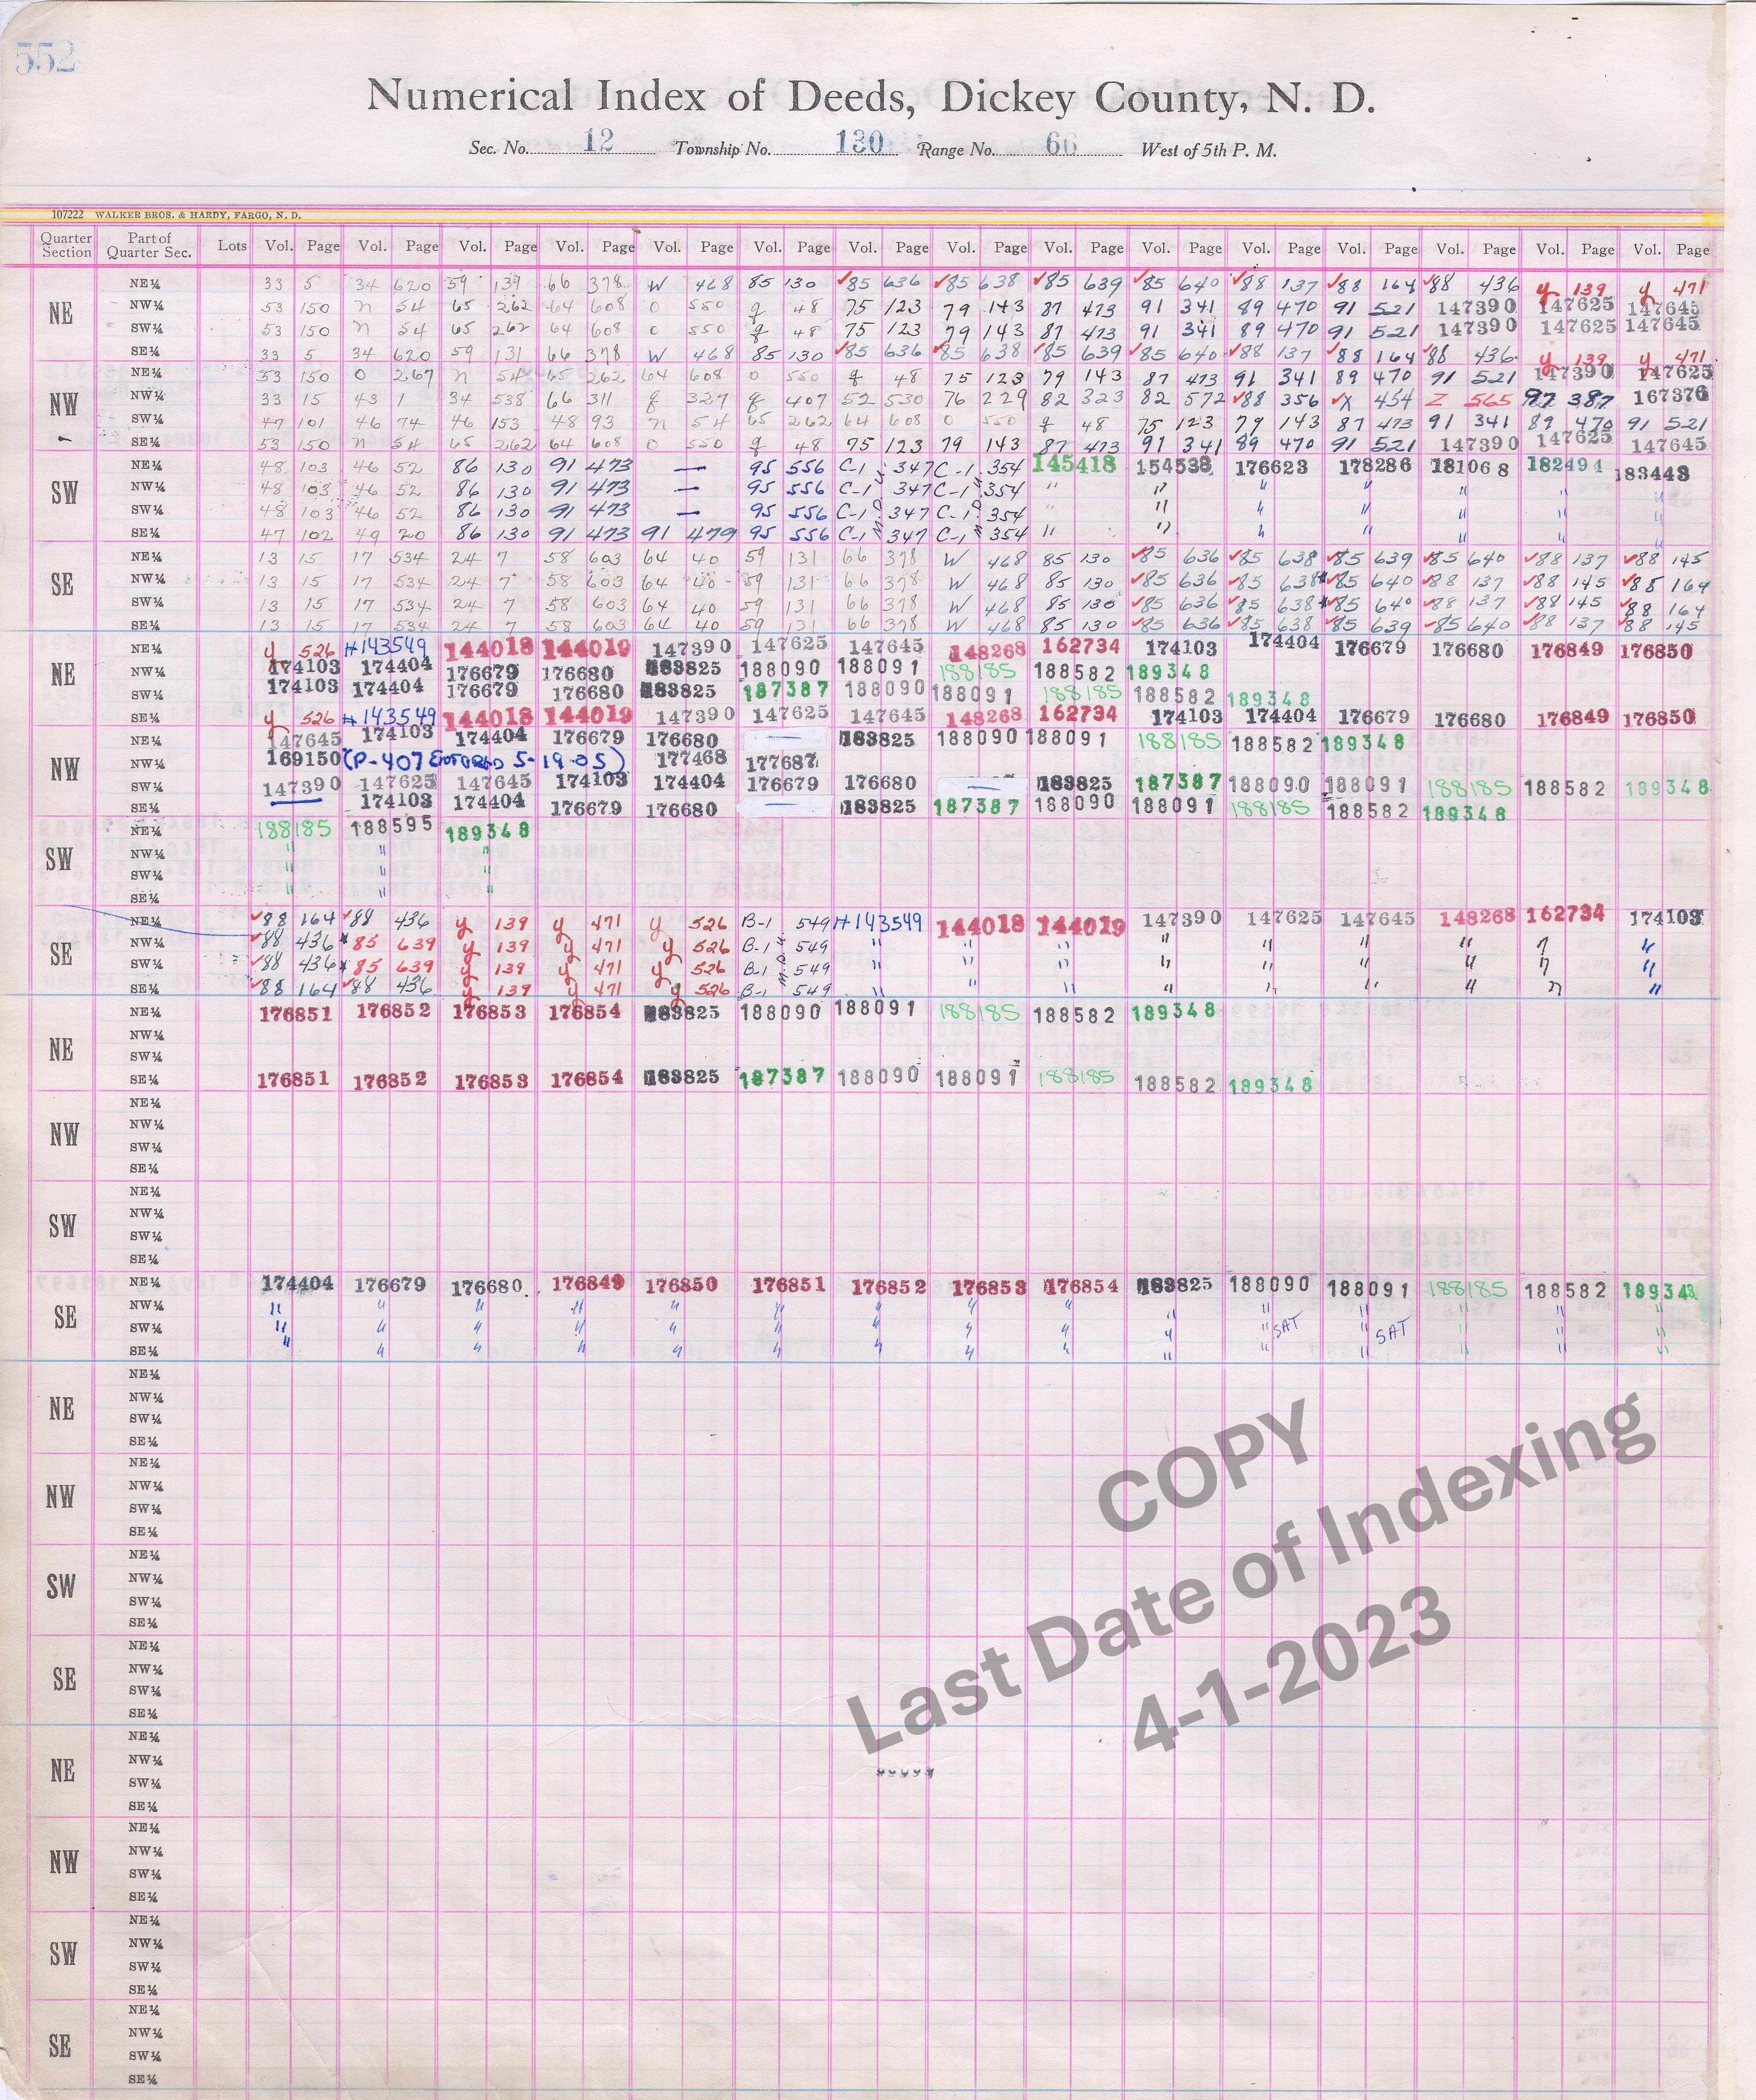 552
Numerical Index of Deeds, Dickey County, N. D.
Sec. No. 12 Township No. 130 Range No. 66 West of 5th P. M.
107222 WALKER BROS. & HARDY, FARGO, N. D.
Quarter Section Part of Quarter Sec. Lots Vol. Page Vol. Page Vol. Page Vol. Page Vol. Page Vol. Page Vol. Page Vol. Page Vol. Page Vol. Page Vol. Page Vol. Page Vol. Page Vol. Page Vol. Page
NE
NE¼ 33 5 34 620 59 139 66 378 W 468 85 130 ✓85 636 ✓85 638 ✓85 639 ✓85 640 ✓88 137 ✓88 164 ✓88 436 y 139 y 471
NW¼ 53 150 n 54 65 262 64 608 O 550 g 48 75 123 79 143 87 473 91 341 89 470 91 521 147390 147625 147645
SW¼ 53 150 n 54 65 262 64 608 O 550 g 48 75 123 79 143 87 473 91 341 89 470 91 521 147390 147625 147645
SE¼ 33 5 34 620 59 131 66 378 W 468 85 130 ✓85 636 ✓85 638 ✓85 639 ✓85 640 ✓88 137 ✓88 164 ✓88 436 y 139 y 471
NW
NE¼ 53 150 O 267 n 54 65 262 64 608 O 550 g 48 75 123 79 143 87 473 91 341 89 470 91 521 147390 147625
NW¼ 33 15 43 1 34 538 66 311 g 327 g 407 52 530 76 229 82 323 82 572 ✓88 356 ✓X 454 Z 565 97 387 167376
SW¼ 47 101 46 74 46 153 48 93 n 54 65 262 64 608 O 550 g 48 75 123 79 143 87 473 91 341 89 470 91 521
SE¼ 53 150 n 54 65 262 64 608 O 550 g 48 75 123 79 143 87 473 91 341 89 470 91 521 147390 147625 147645
SW
NE¼ 48 103 46 52 86 130 91 473 — 95 556 C-1 347 C-1 354 145418 154538 176623 178286 181068 182494 183443
NW¼ 48 103 46 52 86 130 91 473 — 95 556 C-1 347 C-1 354 " " " " " " "
SW¼ 48 103 46 52 86 130 91 473 — 95 556 C-1 347 C-1 354 " " " " " " "
SE¼ 47 102 49 20 86 130 91 473 91 479 95 556 C-1 347 C-1 354 " " " " " " "
SE
NE¼ 13 15 17 534 24 7 58 603 64 40 59 131 66 378 W 468 85 130 ✓85 636 ✓85 638 ✓85 639 ✓85 640 ✓88 137 ✓88 145
NW¼ 13 15 17 534 24 7 58 603 64 40 59 131 66 378 W 468 85 130 ✓85 636 ✓85 638 ✓85 640 ✓88 137 ✓88 145 ✓88 164
SW¼ 13 15 17 534 24 7 58 603 64 40 59 131 66 378 W 468 85 130 ✓85 636 ✓85 638 ✓85 640 ✓88 137 ✓88 145 ✓88 164
SE¼ 13 15 17 534 24 7 58 603 64 40 59 131 66 378 W 468 85 130 ✓85 636 ✓85 638 ✓85 639 ✓85 640 ✓88 137 ✓88 145
NE
NE¼ y 526 #143549 144018 144019 147390 147625 147645 148268 162734 174103 174404 176679 176680 176849 176850
NW¼ 174103 174404 176679 176680 183825 188090 188091 188185 188582 189348
SW¼ 174103 174404 176679 176680 183825 187387 188090 188091 188185 188582 189348
SE¼ y 526 #143549 144018 144019 147390 147625 147645 148268 162734 174103 174404 176679 176680 176849 176850
NW
NE¼ 147645 174103 174404 176679 176680 — 183825 188090 188091 188185 188582 189348
NW¼ 169150 (P-407 Entered 5-19-05) 177468 177687
SW¼ 147390 147625 147645 174103 174404 176679 176680 — 183825 187387 188090 188091 188185 188582 189348
SE¼ — 174103 174404 176679 176680 — 183825 187387 188090 188091 188185 188582 189348
SW
NE¼ 188185 188595 189348
NW¼ " " "
SW¼ " " "
SE¼ " " "
SE
NE¼ ✓88 164 ✓88 436 y 139 y 471 y 526 B-1 549 #143549 144018 144019 147390 147625 147645 148268 162734 174103
NW¼ ✓88 436 85 639 y 139 y 471 y 526 B-1 549 " " " " " " " " "
SW¼ ✓88 436 85 639 y 139 y 471 y 526 B-1 549 " " " " " " " " "
SE¼ ✓88 164 ✓88 436 y 139 y 471 y 526 B-1 549 " " " " " " " " "
NE
NE¼ 176851 176852 176853 176854 183825 188090 188091 188185 188582 189348
NW¼
SW¼
SE¼ 176851 176852 176853 176854 183825 187387 188090 188091 188185 188582 189348
NW
NE¼
NW¼
SW¼
SE¼
SW
NE¼
NW¼
SW¼
SE¼
SE
NE¼ 174404 176679 176680 176849 176850 176851 176852 176853 176854 183825 188090 188091 188185 188582 189348
NW¼ " " " " " " " " " " " " " " "
SW¼ " " " " " " " " " " " SAT " SAT " " "
SE¼ " " " " " " " " " " " " " " "
NE
NE¼
NW¼
SW¼
SE¼
NW
NE¼
NW¼
SW¼
SE¼
SW
NE¼
NW¼
SW¼
SE¼
SE
NE¼
NW¼
SW¼
SE¼
NE
NE¼
NW¼
SW¼
SE¼
NW
NE¼
NW¼
SW¼
SE¼
SW
NE¼
NW¼
SW¼
SE¼
SE
NE¼
NW¼
SW¼
SE¼
COPY
Last Date of Indexing
4-1-2023